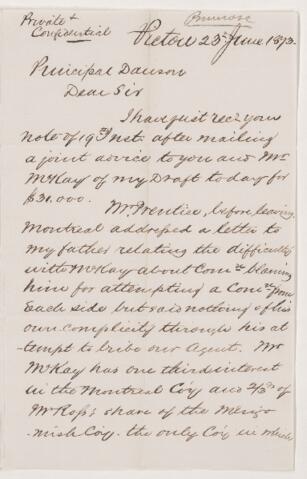 Private &
Confidential
Primrose
Pictou 23d June 1873.
Principal Dawson
Dear Sir
I have just recd your
note of 19th Inst. after mailing
a joint advice to you and Mr
McKay of my Draft to day for
$31.000.
Mr Prentice, before leaving
Montreal addressed a letter to
my father relating the difficulty
with McKay about Comn blaming
him for attempting a Comn from
Each side but said nothing of his
own complicity through his at
-tempt to bribe our Agent. Mr
McKay has one third interest
in the Montreal Coy and 2/3ds of
Mr Ross's share of the
-mish Coy. the only Coy in which